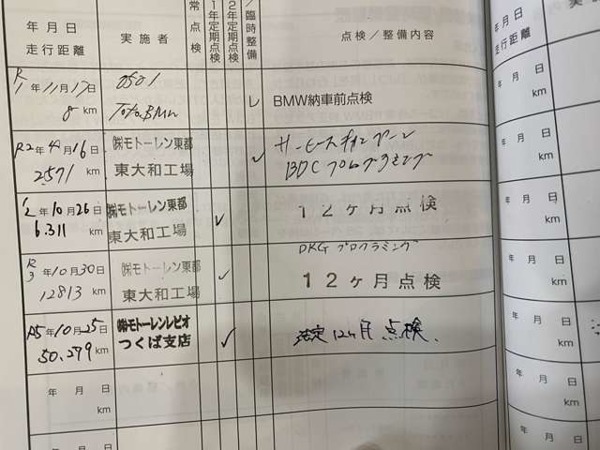 年 月 日
走行距離
実施者
常点検
1年定期点検
2年定期点検
/臨時整備
点検／整備内容
R1年11月17日
8 km
0501
Toto BMW
レ
BMW納車前点検
R2年4月16日
2571 km
㈱モトーレン東都
東大和工場
✓
サービスキャンペーン
BDC プログラミング
'2年10月26日
6.311 km
㈱モトーレン東都
東大和工場
✓
12ヶ月点検
R3年10月30日
12813 km
㈱モトーレン東都
東大和工場
✓
DKG プログラミング
12ヶ月点検
R5年10月25日
50,279 km
㈱モトーレンレピオ
つくば支店
✓
法定12ヶ月点検.
年 月 日
km
年 月 日
年 月 日
走行距離
年 月 日
km
年 月 日
km
年 月 日
km
年 月 日
km
年 月 日
km
年 月 日
km